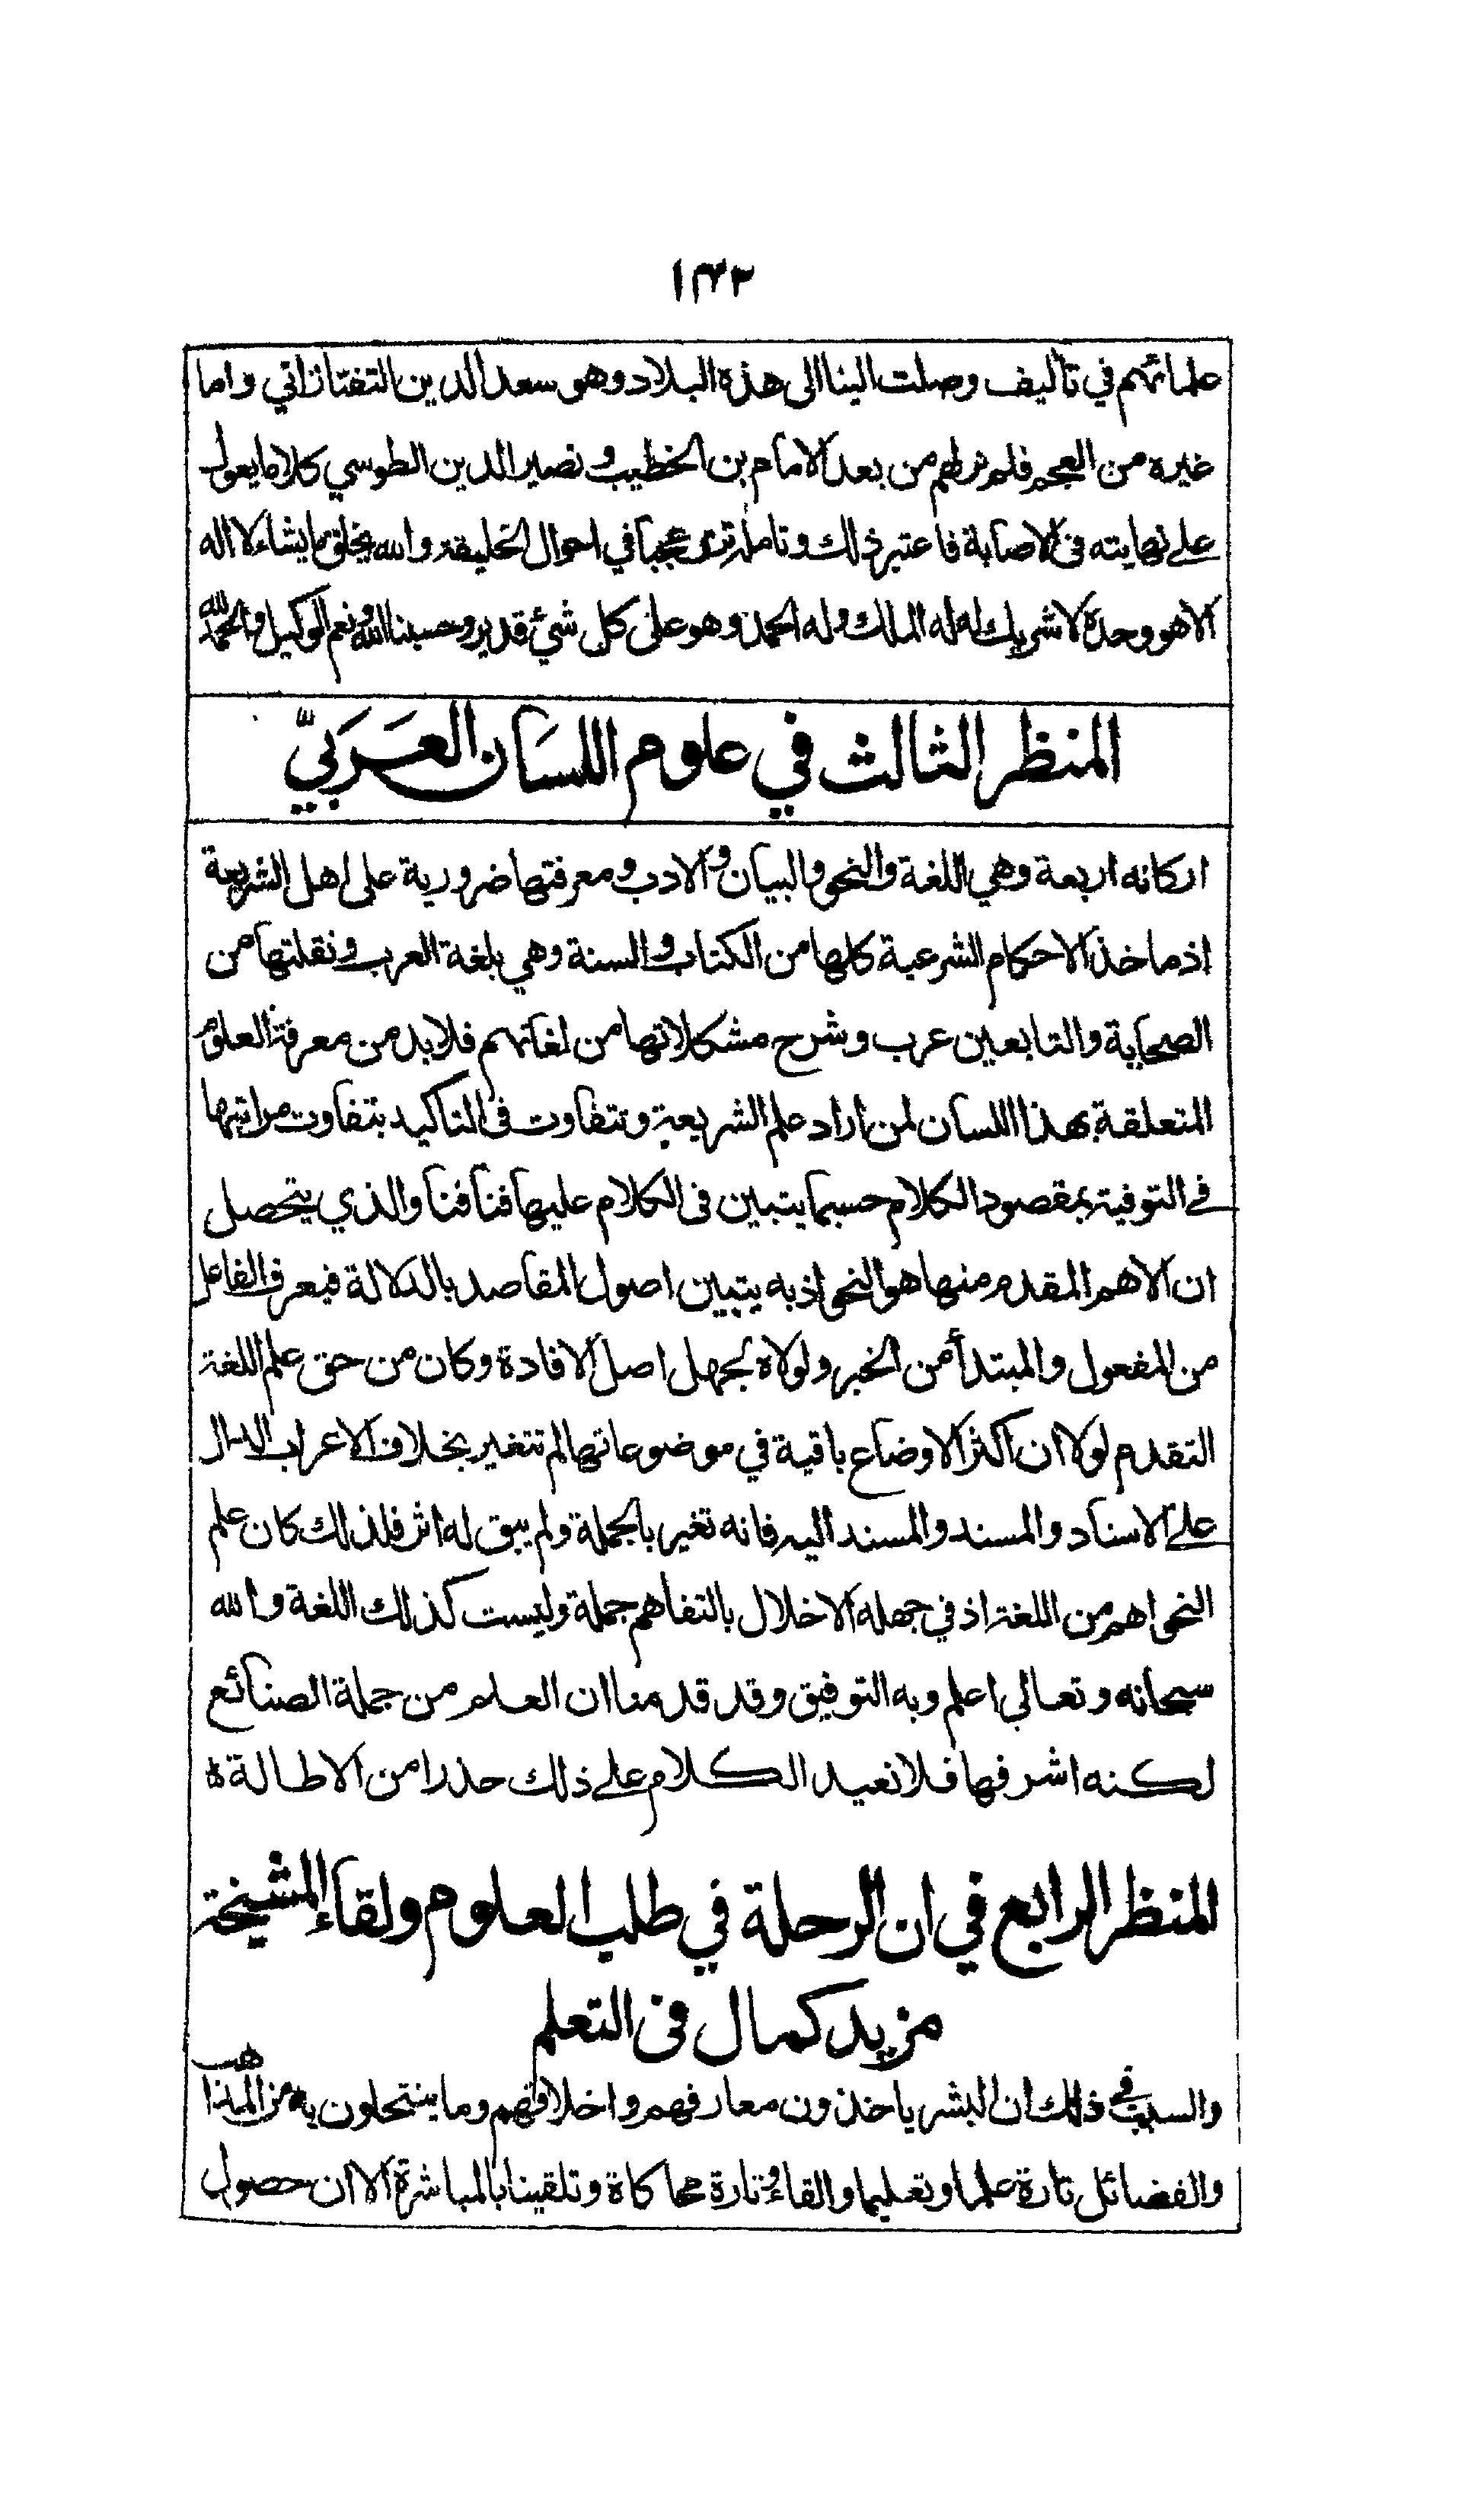 ١٤٣
علمائهم في تآليف وصلت الينا الى هذه البلاد وهو سعد الدين التفتازاني واما
غيره من العجم فلم نر لهم من بعد الامام بن الخطيب ونصير الدين الطوسي كلاما يعول
على نهايته فى الاصابة فاعتبر ذلك وتامله ترى عجبا في احوال الخليقة والله يخلق ما يشاء لا اله
الا هو وحده لا شريك له له الملك وله الحمد وهو على كل شئ قدير وحسبنا الله ونعم الوكيل والحمد لله
المنظر الثالث في علوم اللسَان العَرَبيّ
اركانه اربعة وهي اللغة والنحو والبيان والادب ومعرفتها ضرورية على اهل الشريعة
اذ ماخذ الاحكام الشرعية كلها من الكتاب والسنة وهي بلغة العرب ونقلتها من
الصحابة والتابعين عرب وشرح مشكلاتها من لغاتهم فلا بد من معرفة العلوم
المتعلقة بهذا اللسان لمن اراد علم الشريعة وتتفاوت فى التاكيد بتفاوت مراتبها
في التوفية بمقصود الكلام حسبما يتبين فى الكلام عليها فنا فنا والذي يتحصل
ان الاهم المقدم منها هو النحو اذ به يتبين اصول المقاصد بالدلالة فيعرف الفاعل
من المفعول والمبتدأ من الخبر ولولاه لجهل اصل الافادة وكان من حق علم اللغة
التقدم لولا ان اكثر الاوضاع باقية في موضوعاتها لم تتغير بخلاف الاعراب الدال
على الاسناد والمسند والمسند اليه فانه تغير بالجملة ولم يبق له اثر فلذلك كان علم
النحو اهم من اللغة اذ في جهله الاخلال بالتفاهم جملة وليست كذلك اللغة والله
سبحانه وتعالى اعلم وبه التوفيق وقد قدمنا ان العلم من جملة الصنائع
لكنه اشرفها فلا نعيد الكلام على ذلك حذرا من الاطالة ه
المنظر الرابع في ان الرحلة في طلب العلوم ولقاء المشيخة
مزيد كمال فى التعلم
والسبب في ذلك ان البشر ياخذون معارفهم واخلاقهم وما ينتحلون به من المذاهب
والفضائل تارة علما وتعليما والقاء وتارة محاكاة وتلقينا بالمباشرة الا ان حصول